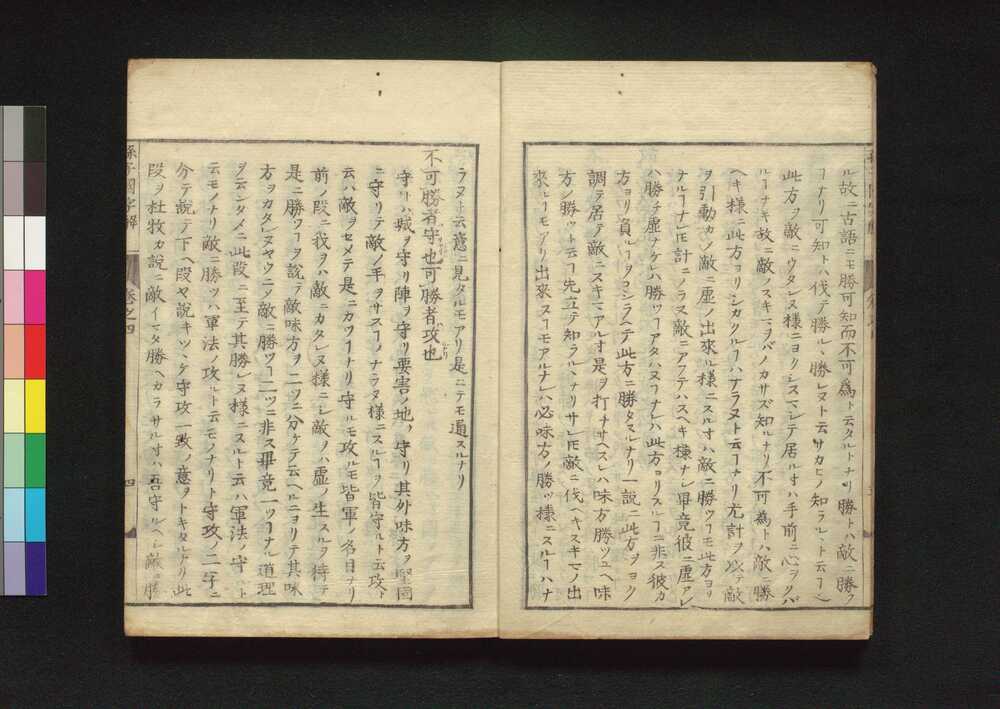 ル故ニ古語ニモ勝可知而不可為ト云タルトナリ勝トハ敵ニ勝ヿ
ナリ可知トハ伐テ勝ルヽ勝レヌト云サカヒノ知ラルヽト云ヿ
此方ヲ敵ニウタレヌ様ニヨクシスマシテ居ルオハ手前ニ心ヲクバ
ルヿナキ故ニ敵ノスキマヲバノカサズ知ルナリ不可為トハ敵ニ勝
ヘキ様ニ此方ヨリシカクルヿハナラヌト云ヿナリ尤計ヲ以テ敵
ヲ引動カシ敵ニ虚ノ出來ル様ニスルオハ敵ニ勝ツヿモ此方ヨリ
ナルヿナレ𪜈計ニノラヌ敵ニアフテハスヘキ様ナシ畢竟彼ニ虚アレ
ハ勝チ虚ナケレハ勝ツヿアタハヌヿナレハ此方ヨリスルヿニ非ス彼カ
方ヨリ負ルヿヲコシラヘテ此方ニ勝タスルナリ一説ニ此方ヲヨク
調ヲ居テ敵ニスキマアルオ是ヲ打ナサヘスレハ味方勝ツユヘ味
方ノ勝ツト云ヿ先立テ知ラルヽナリサレ𪜈敵ニ伐ヘキスキマノ出
來ルヿモアリ出來ヌヿモアルナレハ必味方ノ勝ツ様ニスルヿハナ
ラヌト云意ニ見タルモアリ是ニテモ通スルナリ
不可勝者守也可勝者攻也
守トハ城ヲ守リ陣ヲ守リ要害ノ地ヲ守リ其外味方ヲ堅固
ニ守リテ敵ノ手ヲサスヿノナラヌ様ニスルヿヲ皆守ルト云攻ト
云ハ敵ヲセメテ是ニカツヿナリ守ルモ攻ルモ皆軍ノ名目ナリ
前ノ段ニ我ヲハ敵ニカタレヌ様ニシ敵ノハ虚ノ生スルヲ待テ
是ニ勝ツヿヲ説テ敵味方ヲ二ツニ分ケテ云ヘルニヨリテ其味
方ヲカタレヌヤウニシ敵ニ勝ツヿ二ツニ非ス畢竟一ツヿナル道理
ヲ云ンタメニ此段ニ至テ其勝レヌ様ニスルト云ハ軍法ノ守ルト
云モノナリ敵ニ勝ツハ軍法ノ攻ルト云モノナリト守攻ノ二字ニ
分テ説テ下ヘ段々説キツヽケ守攻一致ノ意ヲトキタルナリ此
段ヲ杜牧カ説ニ敵イマタ勝ヘカラサルオハ吾守ルヘシ敵勝
孫子國字解
卷之四
四